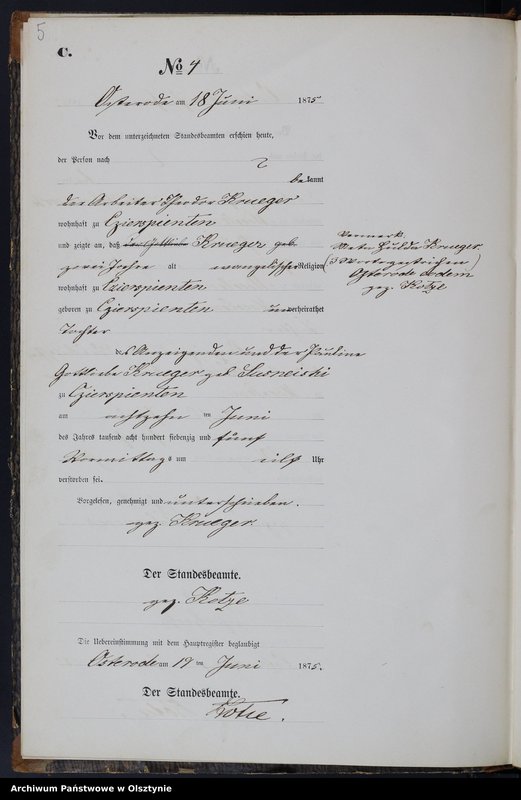 5
C.
No 4
Osterode am 18 Juni 1875
Vor dem unterzeichneten Standesbeamten erschien heute,
der Person nach
bekannt
die Arbeiter Theodor Krueger
wohnhaft zu Czierspienten
und zeigte an, daß Krueger geb
zwei Jahre alt evangelischer Religion
wohnhaft zu Czierspienten
geboren zu Czierspienten unverheirathet
Tochter
des Anzeigenden und der Pauline
Gottliebe Krueger geb
zu Czierspienten
am achtzehn ten Juni
des Jahres tausend acht hundert siebenzig und fünf
Vormittags um eilf Uhr
verstorben sei.
Vorgelesen, genehmigt und unterschrieben.
gez. Krueger
Der Standesbeamte.
gez. Kotze
Die Uebereinstimmung mit dem Hauptregister beglaubigt
Osterode am 19 ten Juni 1875.
Der Standesbeamte.
Kotze.
Vermerk
Hulda Krueger
(3 Worte gestrichen)
Osterode eodem
gez. Kotze
Archiwum Państwowe w Olsztynie